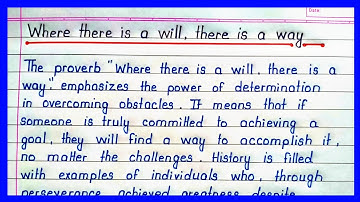 Date:
Where there is a will, there is a way
The proverb "Where there is a will, there is a
way" emphasizes the power of determination
in overcoming obstacles. It means that if
someone is truly committed to achieving a
goal, they will find a way to accomplish it,
no matter the challenges. History is filled
with examples of individuals who, through
perseverance, achieved greatness despite